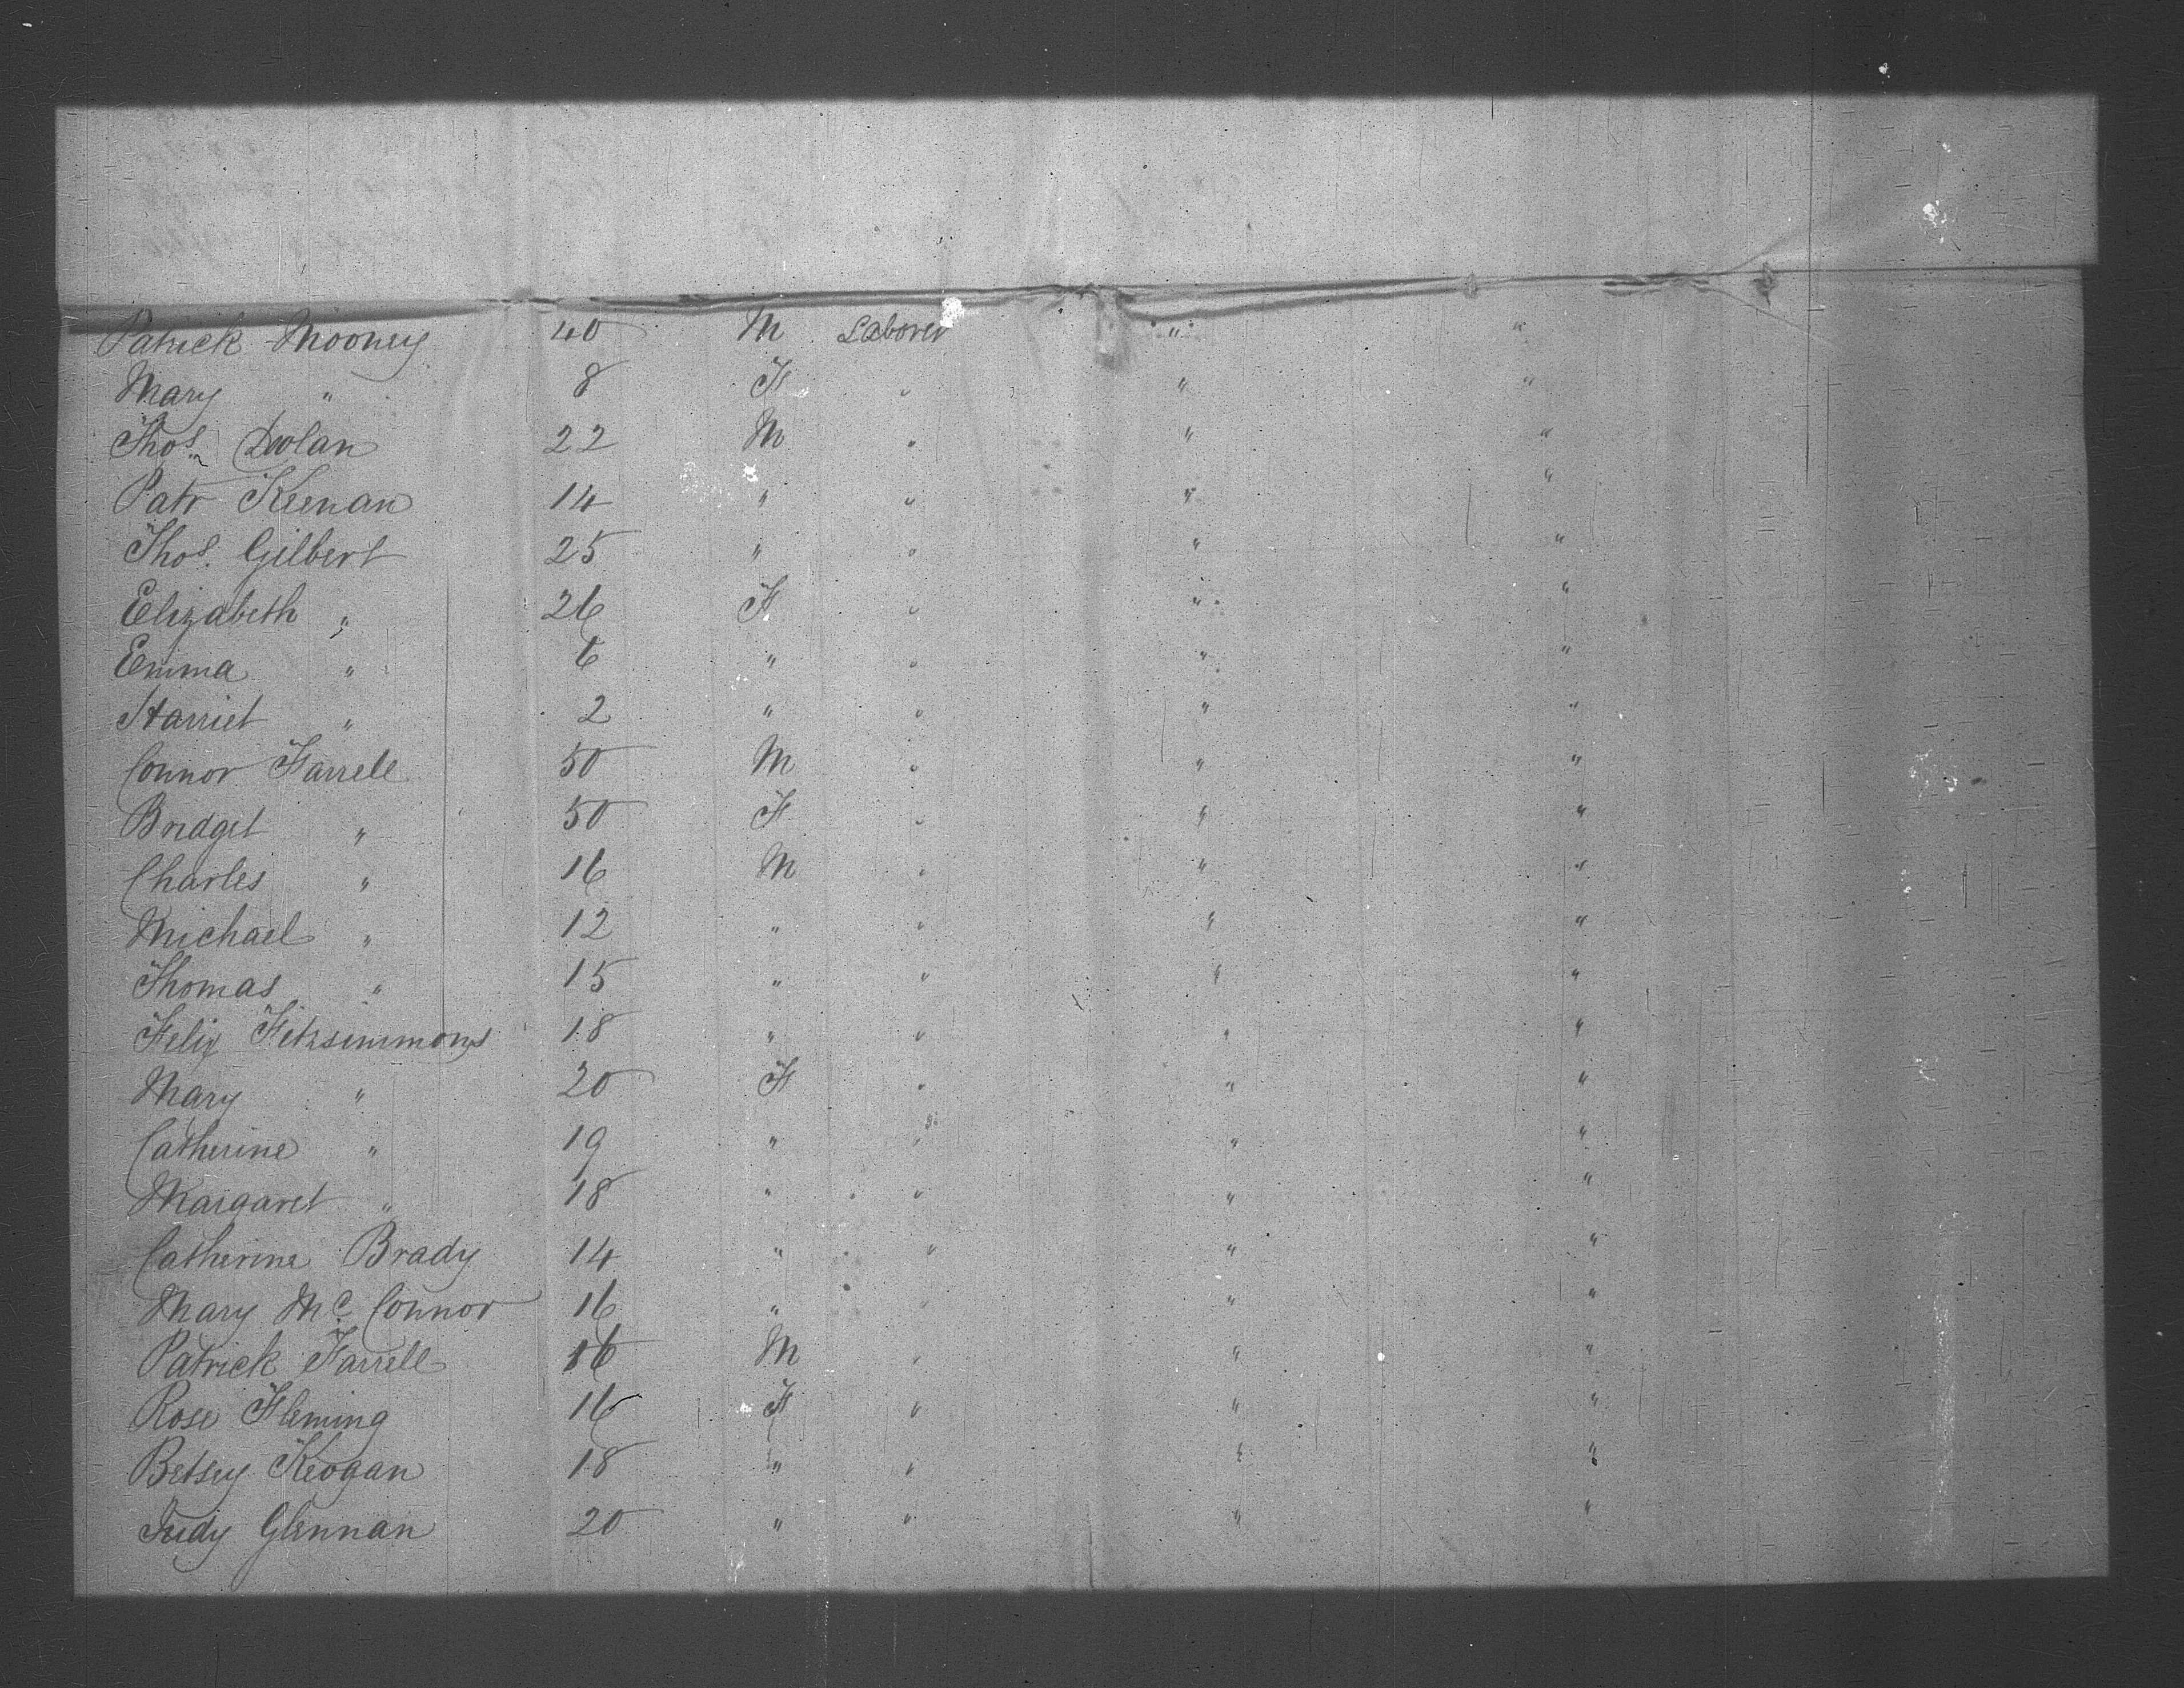 Patrick Mooney 40 M Laborer " "
Mary " 8 F " " "
Thos. Dolan 22 M " " "
Patr Keenan 14 " " " "
Thos. Gilbert 25 " " " "
Elizabeth " 26 F " " "
Emma " 6 " " " "
Harriet " 2 " " " "
Connor Farrell 50 M " " "
Bridget " 50 F " " "
Charles " 16 M " " "
Michael " 12 " " " "
Thomas " 15 " " " "
Felix Fitzsimmons 18 " " " "
Mary " 20 F " " "
Catherine " 19 " " " "
Margaret " 18 " " " "
Catherine Brady 14 " " " "
Mary Mc Connor 16 " " " "
Patrick Farrell 16 M " " "
Rose Fleming 16 F " " "
Betsey Keogan 18 " " " "
Judy Glennan 20 " " " "